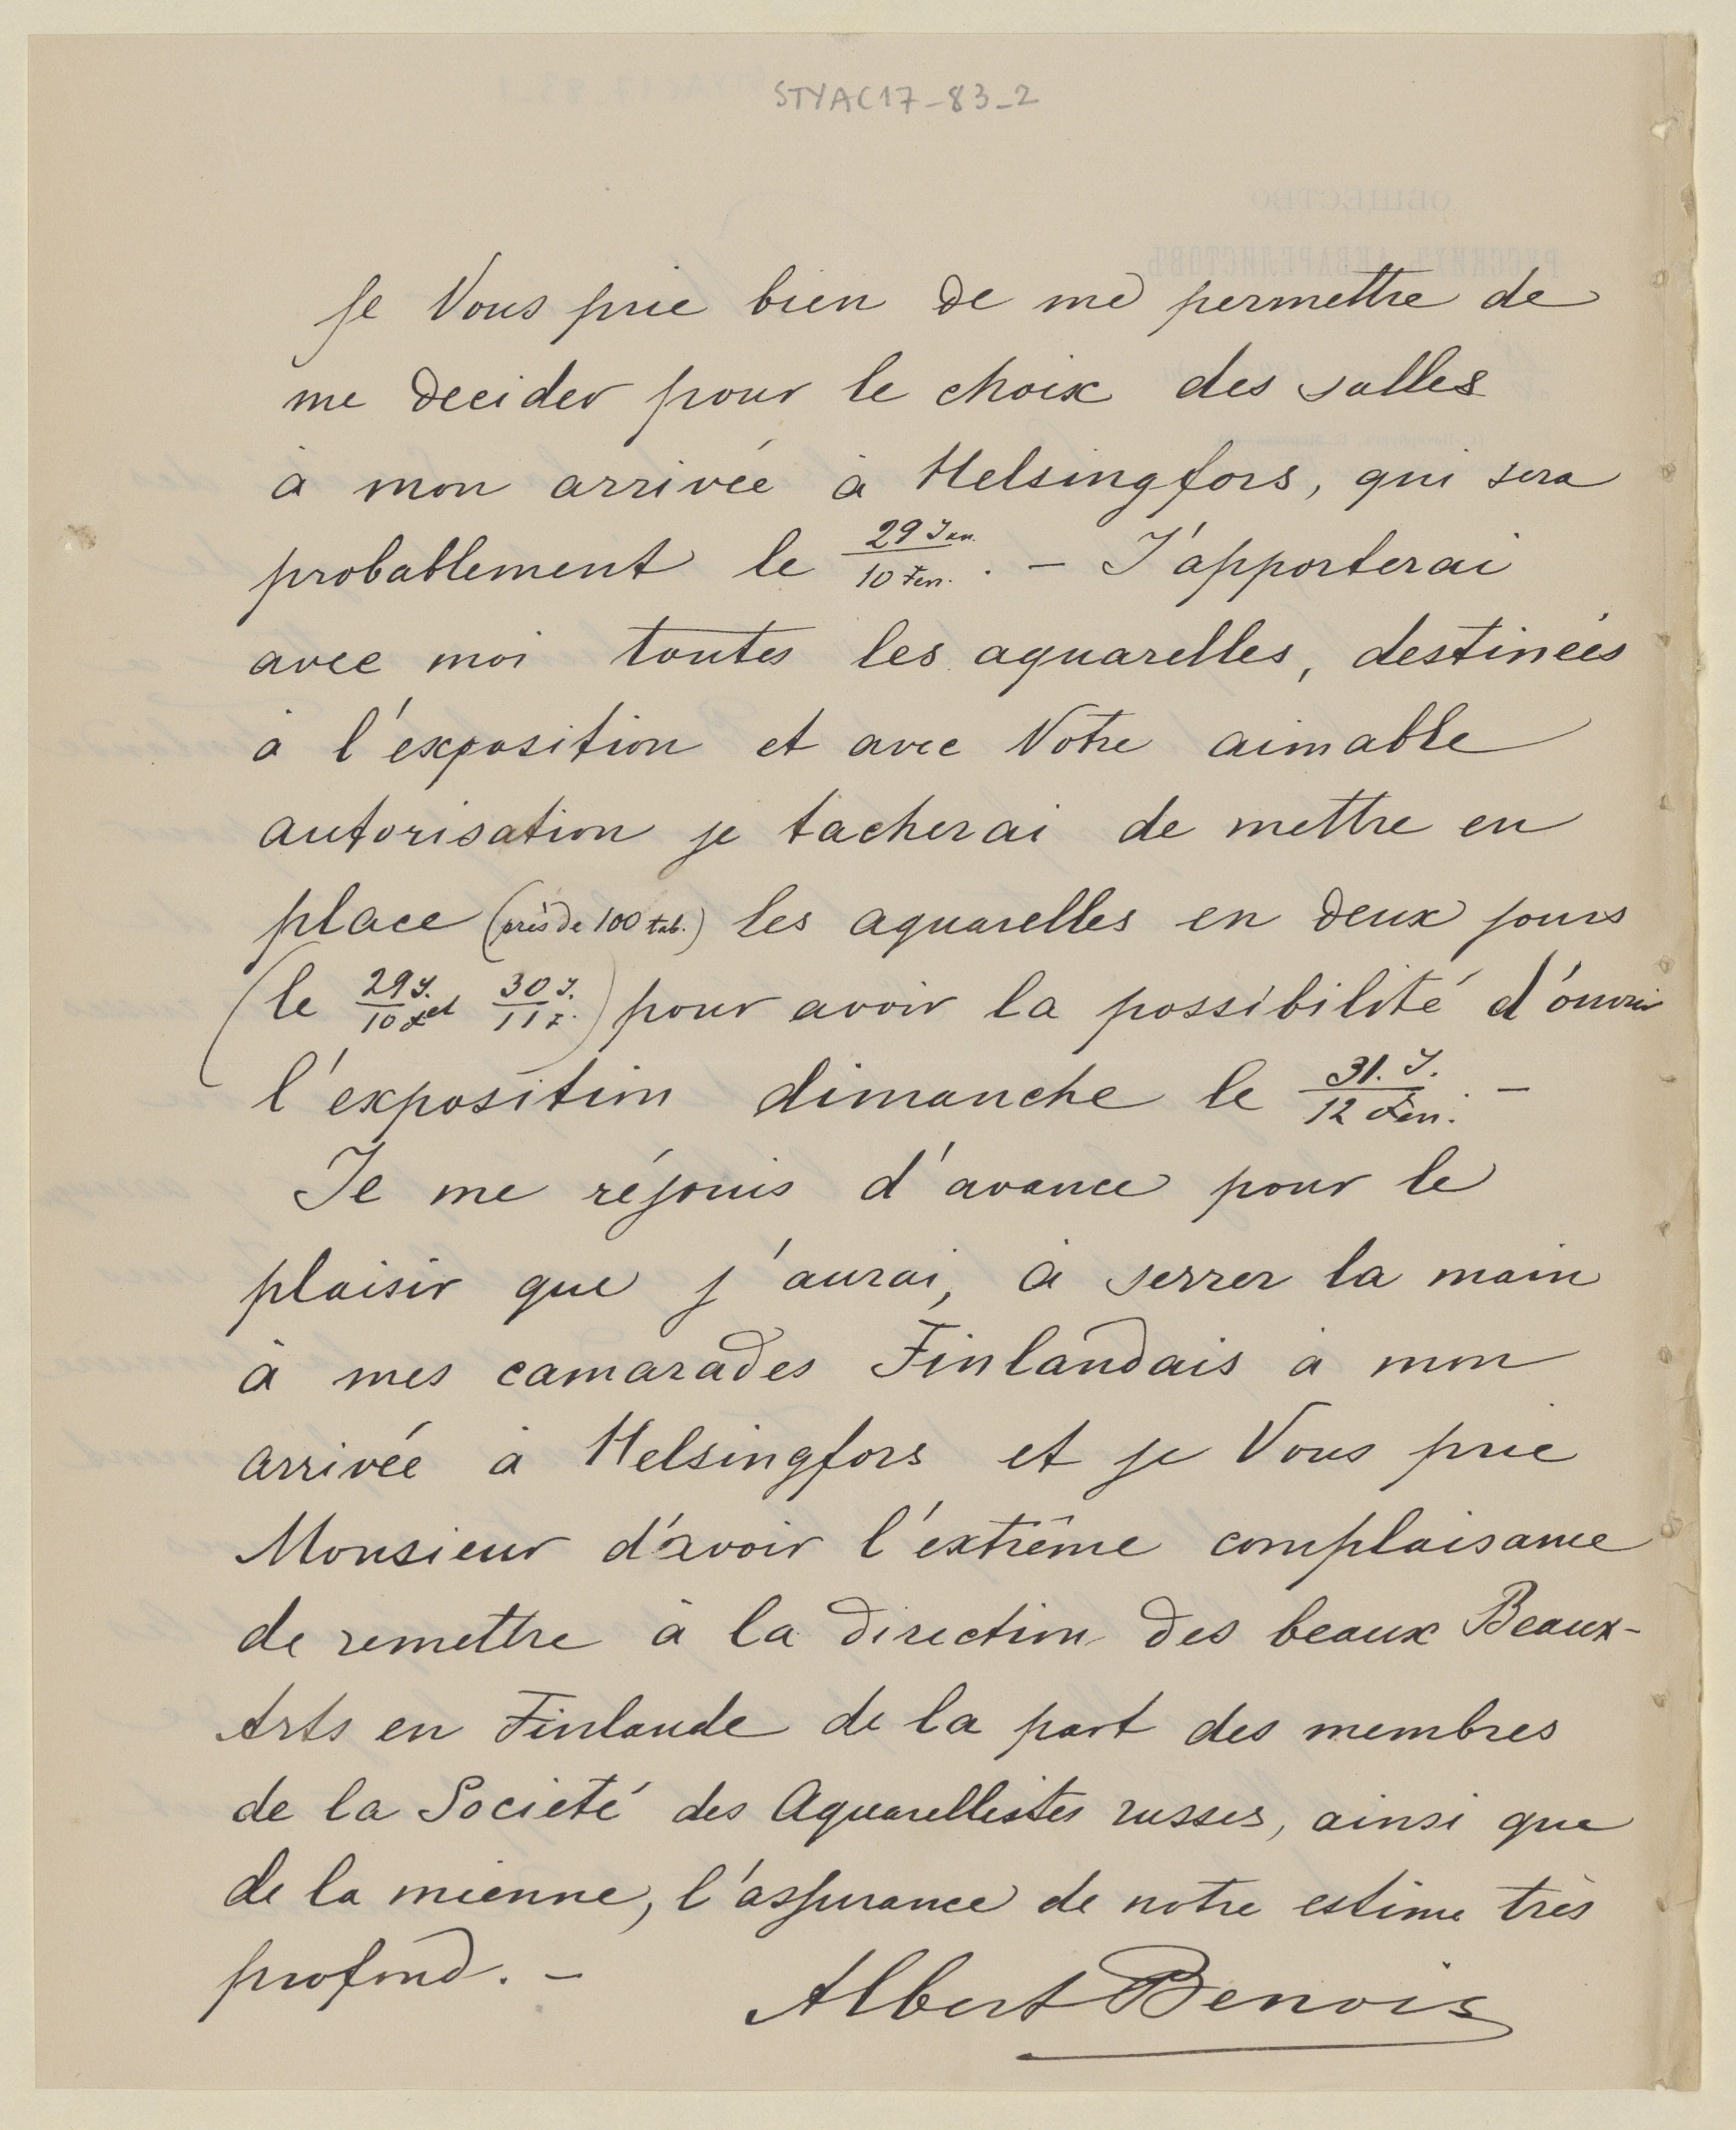 STYAC17-83-2
Je Vous prie bien de me permettre de
me decider pour le choix des salles
à mon arrivée à Helsingfors, qui sera
probablement le 29 Jan. / 10 Fev. . — J'apporterai
avec moi toutes les aquarelles, destinées
à l'exposition et avec Votre aimable
autorisation je tacherai de mettre en
place (près de 100 tab.) les aquarelles en deux jours
(le 29 J. / 10 F. et 30 J. / 11 F.) pour avoir la possibilité d'ouvrir
l'exposition dimanche le 31. J. / 12 Fev. . —
Je me réjouis d'avance pour le
plaisir que j'aurai, à serrer la main
à mes camarades Finlandais à mon
arrivée à Helsingfors et je Vous prie
Monsieur d'avoir l'extrême complaisance
de remettre à la direction des beaux Beaux-
Arts en Finlande de la part des membres
de la Societé des Aquarellistes russes, ainsi que
de la mienne, l'assurance de notre estime très
profond. —
Albert Benois